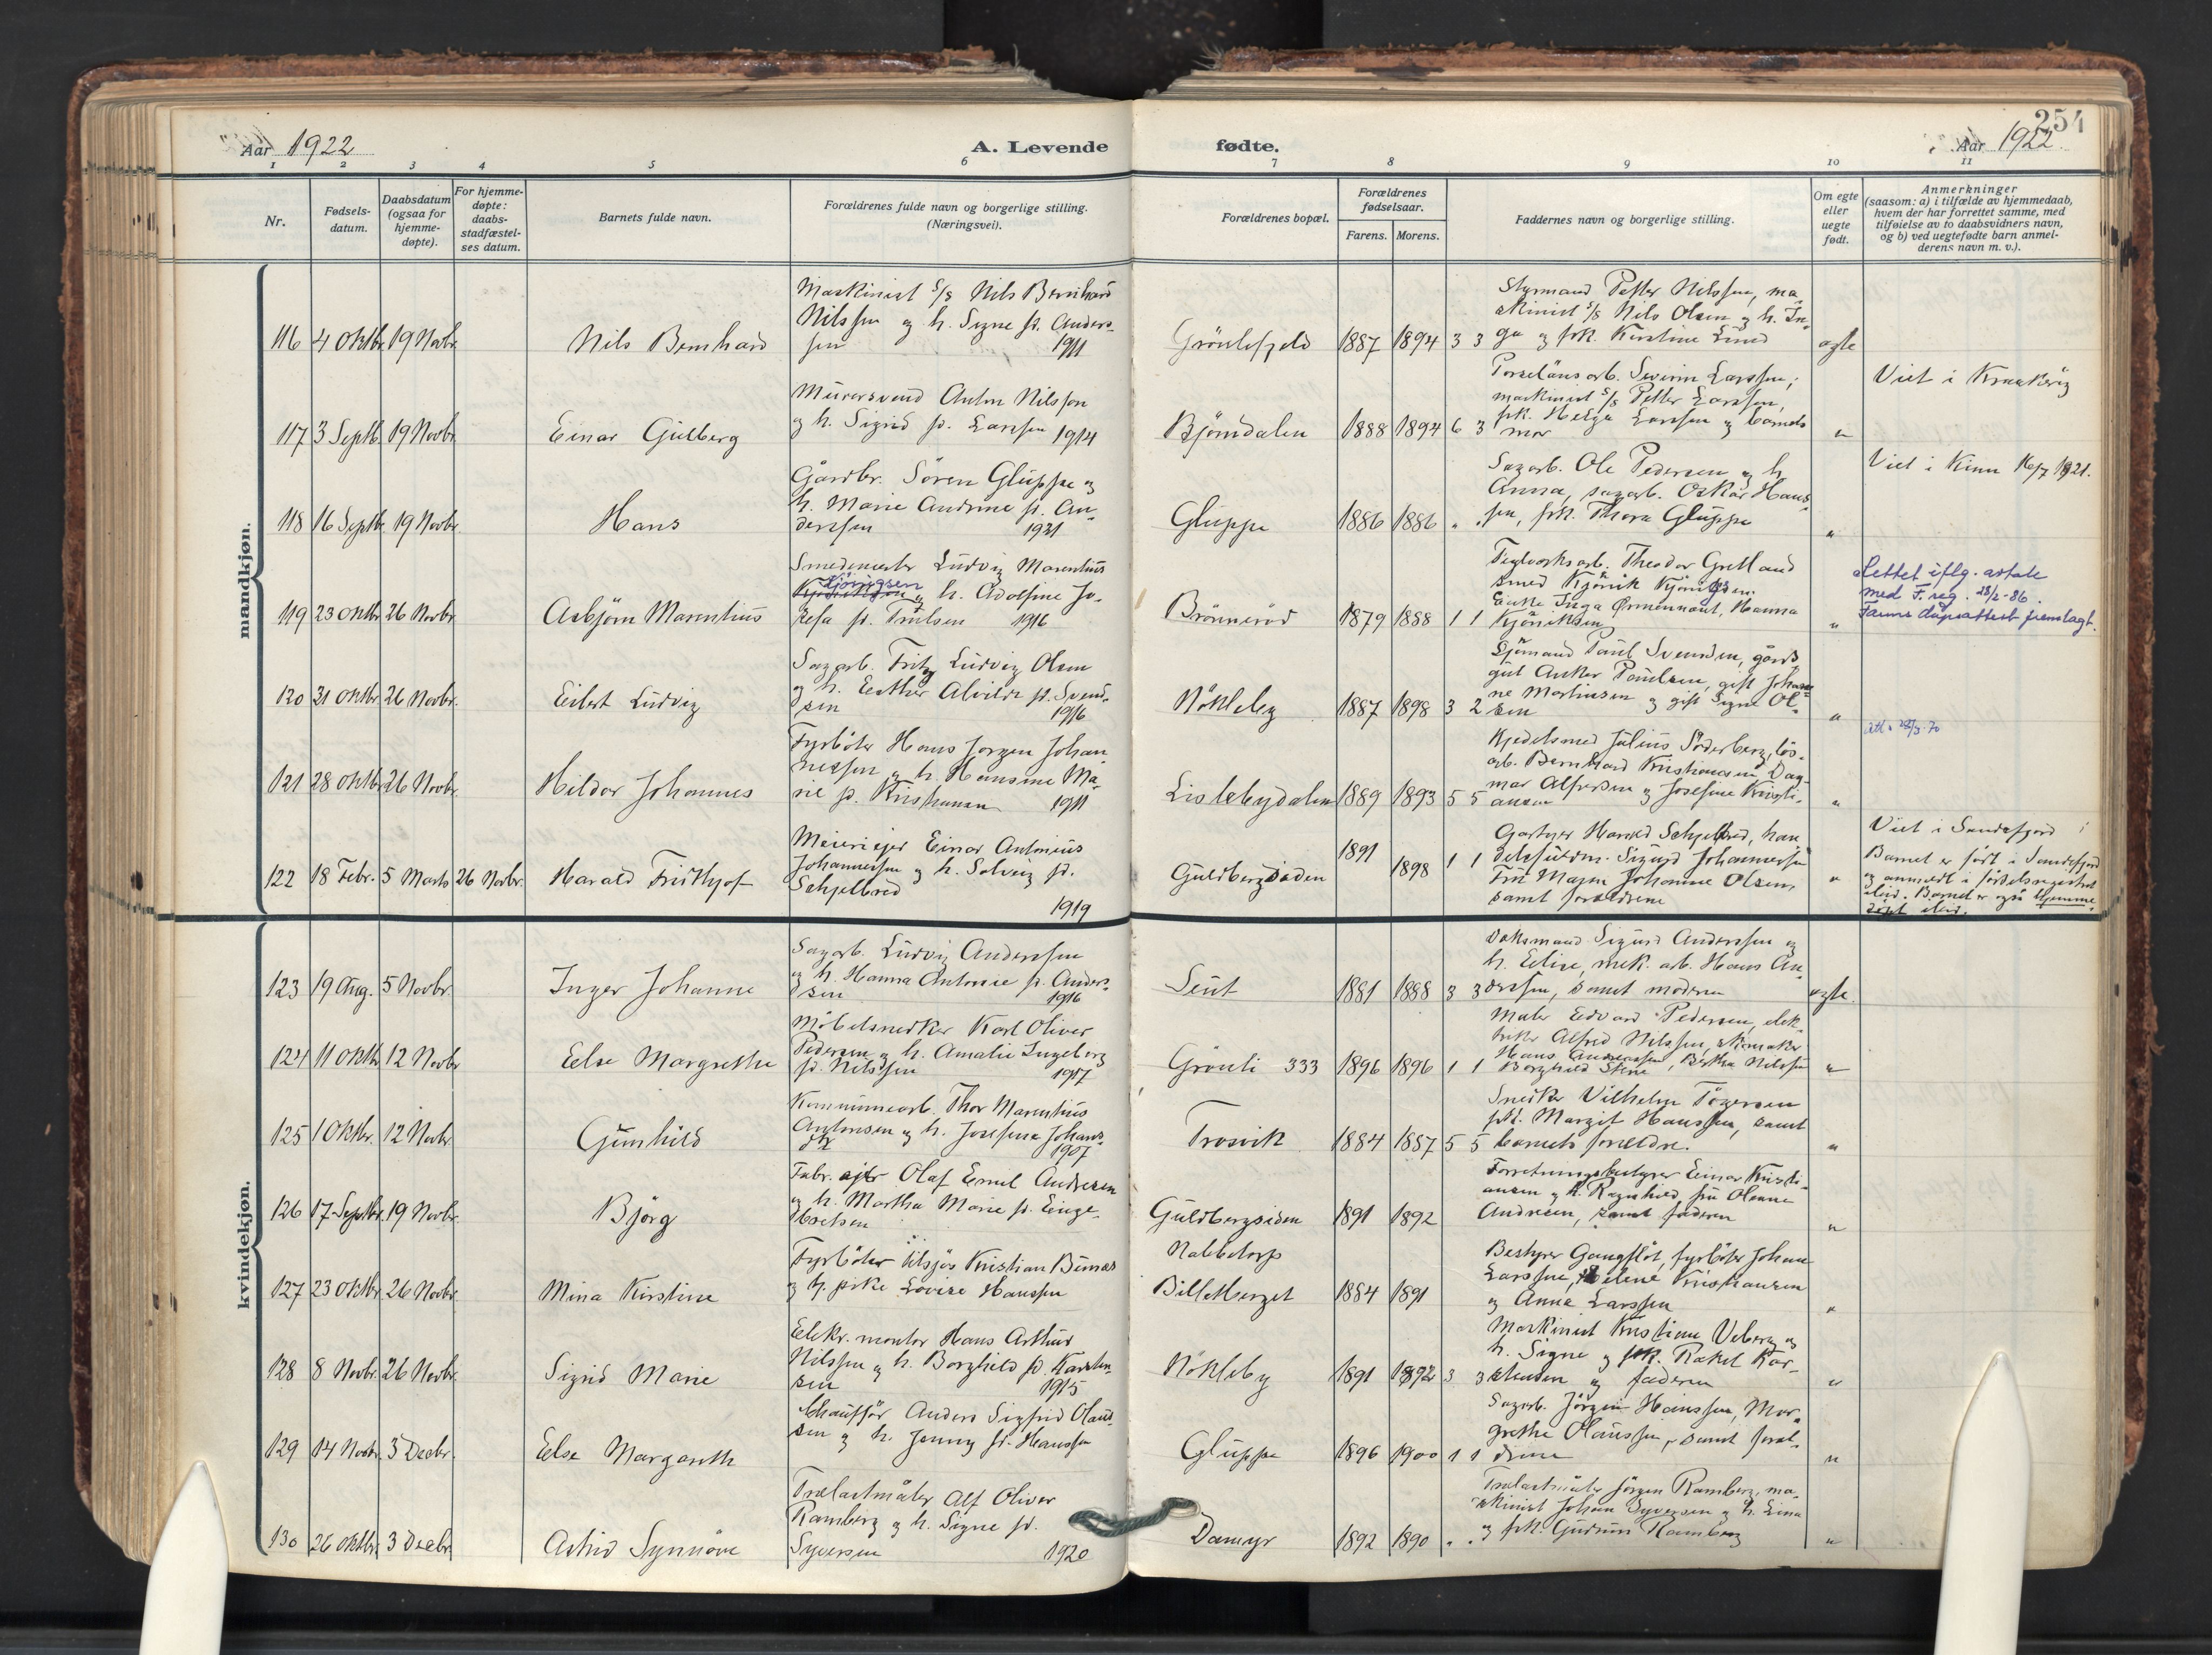 Aar 1922
A. Levende fødte.
254
Aar 1922.
1 2 3 4 5 6 7 8 9 10 11
Nr.
Fødsels-
datum.
Daabsdatum
(ogsaa for
hjemme-
døpte).
For hjemme-
døpte:
daabs-
stadfæstel-
ses datum.
Barnets fulde navn.
Forældrenes fulde navn og borgerlige stilling.
(Næringsvei).
Forældrenes bopæl.
Forældrenes
fødselsaar.
Farens. Morens.
Faddernes navn og borgerlige stilling.
Om egte
eller
uegte
født.
Anmerkninger
(saasom: a) i tilfælde av hjemmedaab,
hvem der har forrettet samme, med
tilføielse av to daabsvidners navn,
og b) ved uegtefødte barn anmel-
derens navn m. v.).
mandkjøn.
116 4 Oktbr. 19 Novbr. Nils Bernhard
Maskinist s/s Nils Bernhard
Nilssen og h. Signe f. Anders-
sen 1911
Grönlifjeld 1887 1894 3 3
Styrmand Petter Nilssen, ma-
skinist s/s Nils Olsen og h. In-
ga og frk. Kirstine Lund
egte
117 3 Septb. 19 Novbr. Einar Gulberg
Murersvend Anton Nilsson
og h. Sigrid f. Larssen 1914
Björndalen 1888 1894 6 3
Porselänsarb. Larssen,
maskinist s/s Petter Larssen,
frk. Helga Larssen og barnets
mor
"
Viet i Kraakeröy
118 16 Septbr. 19 Novbr. Hans
Gårdbr. Sören Gluppe og
h. Marie Andrine f. An-
derssen 1921
Gluppe 1886 1886 " "
Sagarb. Ole Pedersen og h.
Anna, sagarb. Oskar Hans-
sen, frk. Thora Gluppe
"
Viet i Kinn 16/7 1921.
119 23 Oktbr. 26 Novbr. Asbjörn Marentius
Smedemester Ludvig Marentius
Kjönigsen og h. Adolfine Jo-
sefa f. Trulsen 1916
Brönneröd 1879 1888 1 1
Teglverksarb. Theodor Gretland
smed Kjönik Kjöniksen.
Enke Inga Ørmennant, Hanna
Kjöniksen
"
Rettet iflg. avtale
med F. reg. 28/2-86.
Farens dåpsattest fremlagt.
120 31 Oktbr. 26 Novbr. Eilert Ludvig
Sagarb. Fritz Ludvig Olsen
og h. Esther Alvilde f. Svend-
sen 1916
Nökleby 1887 1898 3 2
Sjömand Paul Svendsen, gårds-
gut Anker Paulsen, gift Johan-
ne Martinsen og gift Signe Ol-
sen
"
121 28 Oktbr. 26 Novbr. Hildor Johannes
Fyrböter Hans Jörgen Johan-
nessen og h. Hansine Ma-
rie f. Kristiansen 1911
Lislebydalen 1889 1893 5 5
Kjedelsmed Julius Söderberg, lös-
arb. Bernhard Kristiansen, Dag-
mar Alfredsen og Josefine Kristi-
ansen
"
122 18 Febr. 5 Marts 26 Novbr. Harald Fridthjof
Meieriejer Einar Antonius
Johannessen og h. Solveig f.
Schjelbred
1919
Guldbergsiden 1891 1898 1 1
Gartner Harald Schjelbred, han-
delsfuldm. Sigurd Johannessen
Fru Johanne Olsen,
samt forældrene
"
Viet i Sandefjord
Barnet er født i Sandefjord
og anmeldt i fødselsregistret
deid. Barnet er også hjemme-
döpt deid.
kvindekjøn.
123 19 Aug. 5 Novbr. Inger Johanne
Sagarb. Ludvig Anderssen
og h. Hanna Antonie f. Anders-
sen 1916
Leut 1881 1888 3 3
Voksmand Sigurd Anderssen og
h. Elise, mek. arb. Hans An-
derssen, samt moderen
egte.
124 11 Oktbr 12 Novbr Else Margrethe
Möbelsnedker Karl Oliver
Pedersen og h. Amalie Ingeborg
f. Nilssen 1917
Grönli 333 1896 1896 1 1
Maler Edvard Pedersen, elek-
triker Alfred Nilssen, skomaker
Hans Andreassen, Bertha Nilssen
Borghild Stene
"
125 1 Oktbr. 12 Novbr Gunhild
Kommunearb. Thor Marentius
Antonsen og h. Josefine Johans-
dtr 1907
Trosvik 1884 1887 5 5
Snedker Vilhelm Tögersen
frk. Margit Hanssen, samt
barnets forældre.
"
126 17 Septbr. 19 Novbr. Björg
Fabr. ejer Olaf Emil Andresen
og h. Martha Marie f. Enge-
bretsen
Guldbergsiden 1891 1892
Forretningsbestyrer Einar Kristi-
ansen og h. Ragnhild, fru Olenne
Andresen, samt faderen
"
127 23 Oktbr 26 Novbr. Mina Kirstine
Fyrböter utsjøs Kristian
og h. Lovise Hanssen
Nabbetorp
Billetberget 1884 1891
Bestyrer Gangflöt, fyrböter Johan
Larssen, Helene Kristiansen
og Anna Larssen
"
128 8 Novbr. 26 Novbr. Sigrid Marie
Elekr. montör Hans Arthur
Nilssen og h. Borghild f. Karsten-
sen 1915
Nökleby 1891 1892 3 3
Maskinist Kristian Veberg og
h. Signe og frk. Rakel Kar-
stensen og faderen
"
129 14 Novbr. 3 Decbr. Else Margareth
Chauffør Anders Sigfrid Olaus-
sen og h. Jenny f. Hanssen
Gluppe 1896 1900 1 1
Sagarb. Jörgen Hanssen, Mar-
grethe Olaussen, samt foræl-
drene
"
130 26 Oktbr. 3 Decbr. Astrid Synnöve
Trælastmåler Alf Oliver
Ramberg og h. Signe f.
Syversen 1920
Damyr 1892 1890 " "
Trælastmåler Jörgen Ramberg, ma-
skinist Johan Syversen og h. Lina
og frk. Gudrun Ramberg
"